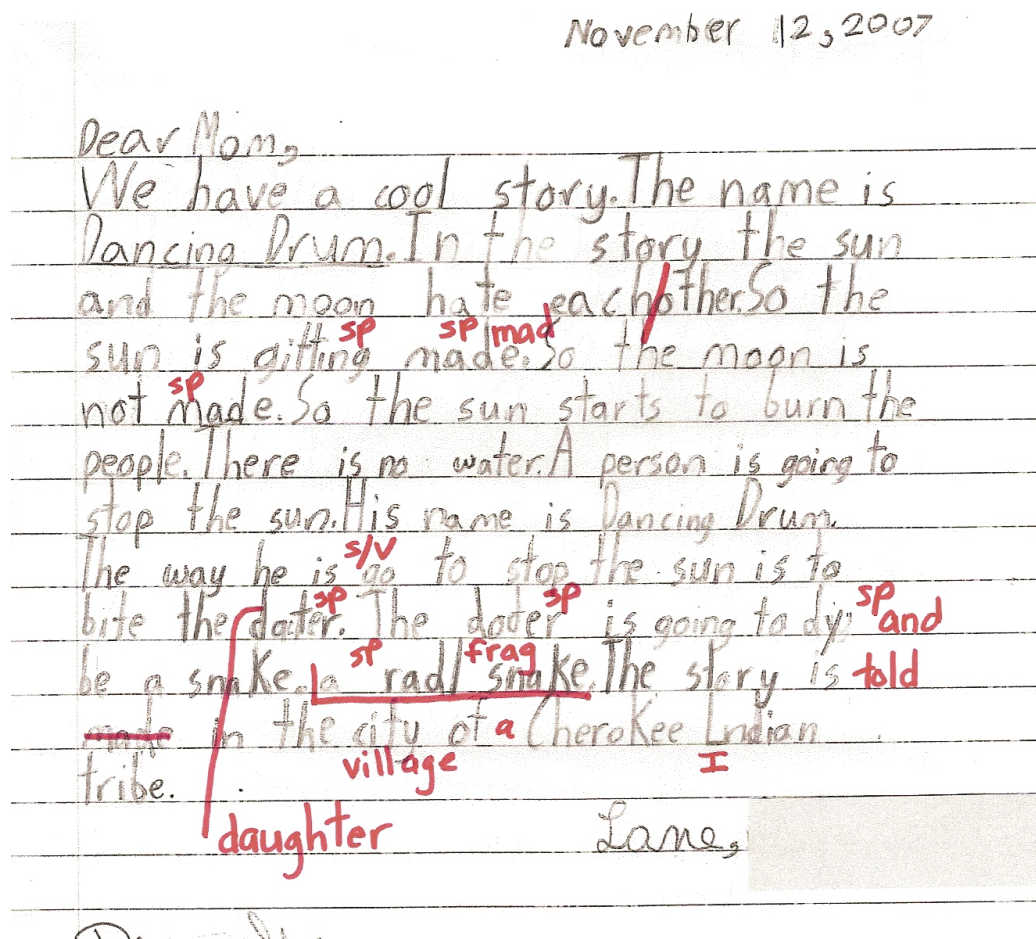 November 12, 2007
Dear Mom,
We have a cool story. The name is
Dancing Drum. In the story the sun
and the moon hate eachother. So the
sp sp mad
sun is gitting made. So the moon is
sp
not made. So the sun starts to burn the
people. There is no water. A person is going to
stop the sun. His name is Dancing Drum.
s/v
The way he is go to stop the sun is to
sp sp sp and
bite the dater. The doter is going to dy
sp frag
be a snake. a radl snake. The story is told
made in the city of a Cherokee Indian
village I
tribe.
daughter
Lane,